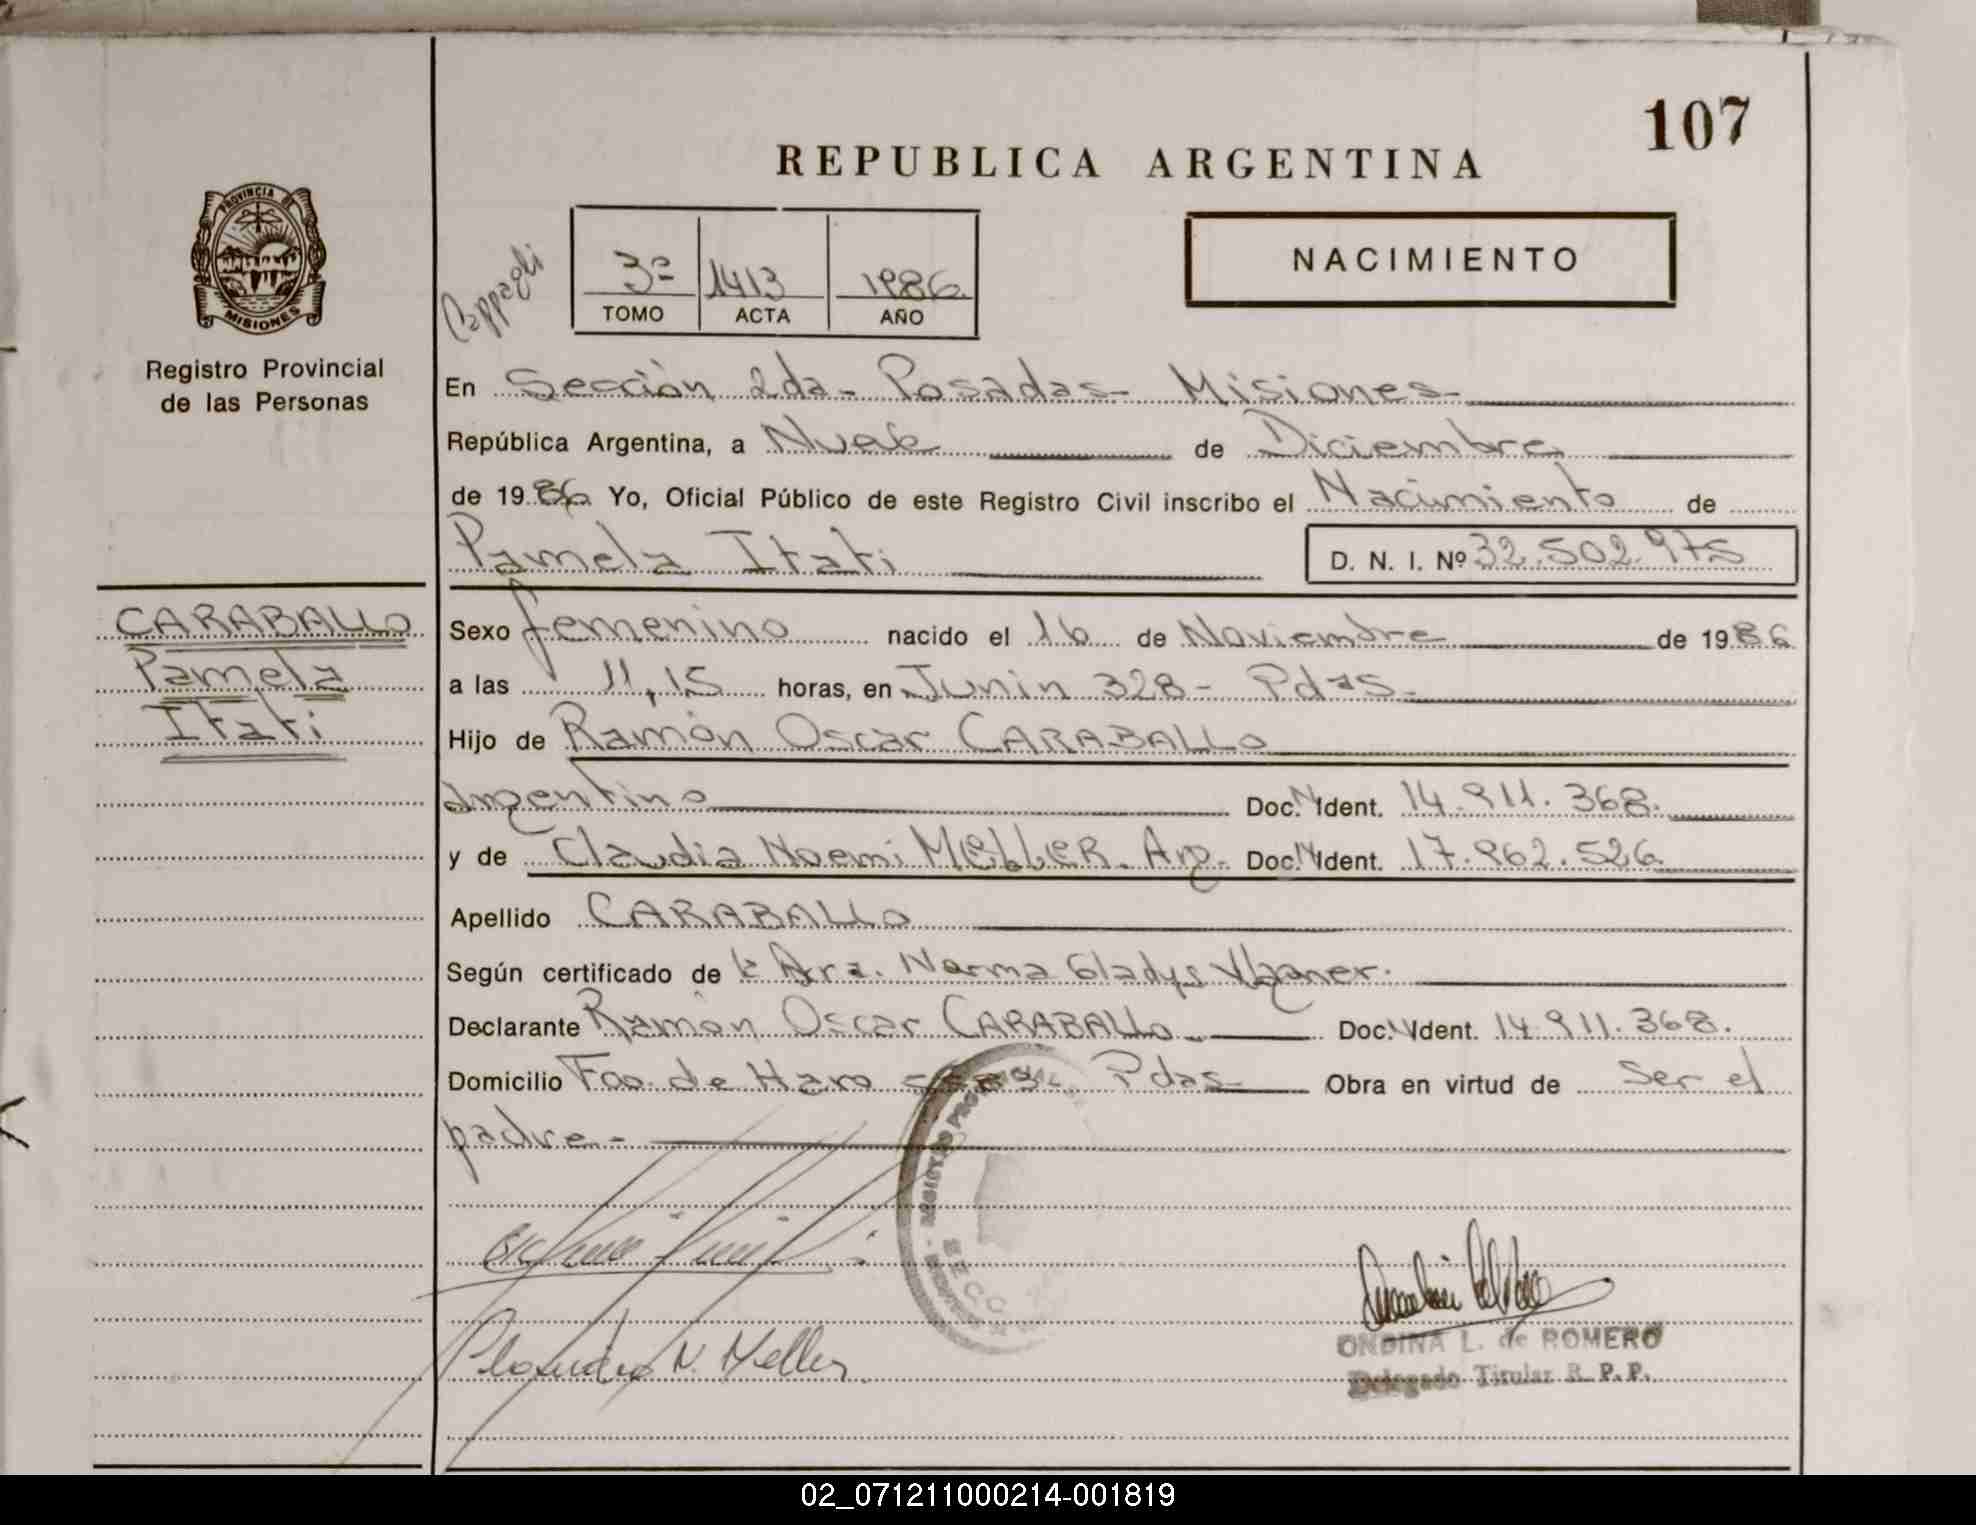 107
REPUBLICA ARGENTINA
PROVINCIA DE
MISIONES
Registro Provincial
de las Personas
Cappagli
3º 1413 1986
TOMO ACTA AÑO
NACIMIENTO
En Sección 2da- Posadas- Misiones
República Argentina, a Nueve de Diciembre
de 1986 Yo, Oficial Público de este Registro Civil inscribo el Nacimiento de
Pamela Itati D. N. I. Nº 32.502.975
CARABALLO
Pamela
Itati
Sexo femenino nacido el 16 de Noviembre de 1986
a las 11,15 horas, en Junin 328- Pdas-
Hijo de Ramón Oscar CARABALLO
Argentino Doc. Ident. 14.911.368.
y de Claudia Noemi MELLER. Arg. Doc. Ident. 17.962.526
Apellido CARABALLO
Según certificado de la Dra. Norma Gladys
Declarante Ramón Oscar CARABALLO Doc. Ident. 14.911.368.
Domicilio Fco. de Haro Pdas Obra en virtud de ser el
padre-
N. Meller
ONDINA L. de ROMERO
Delegado Titular R. P. P.
02_071211000214-001819